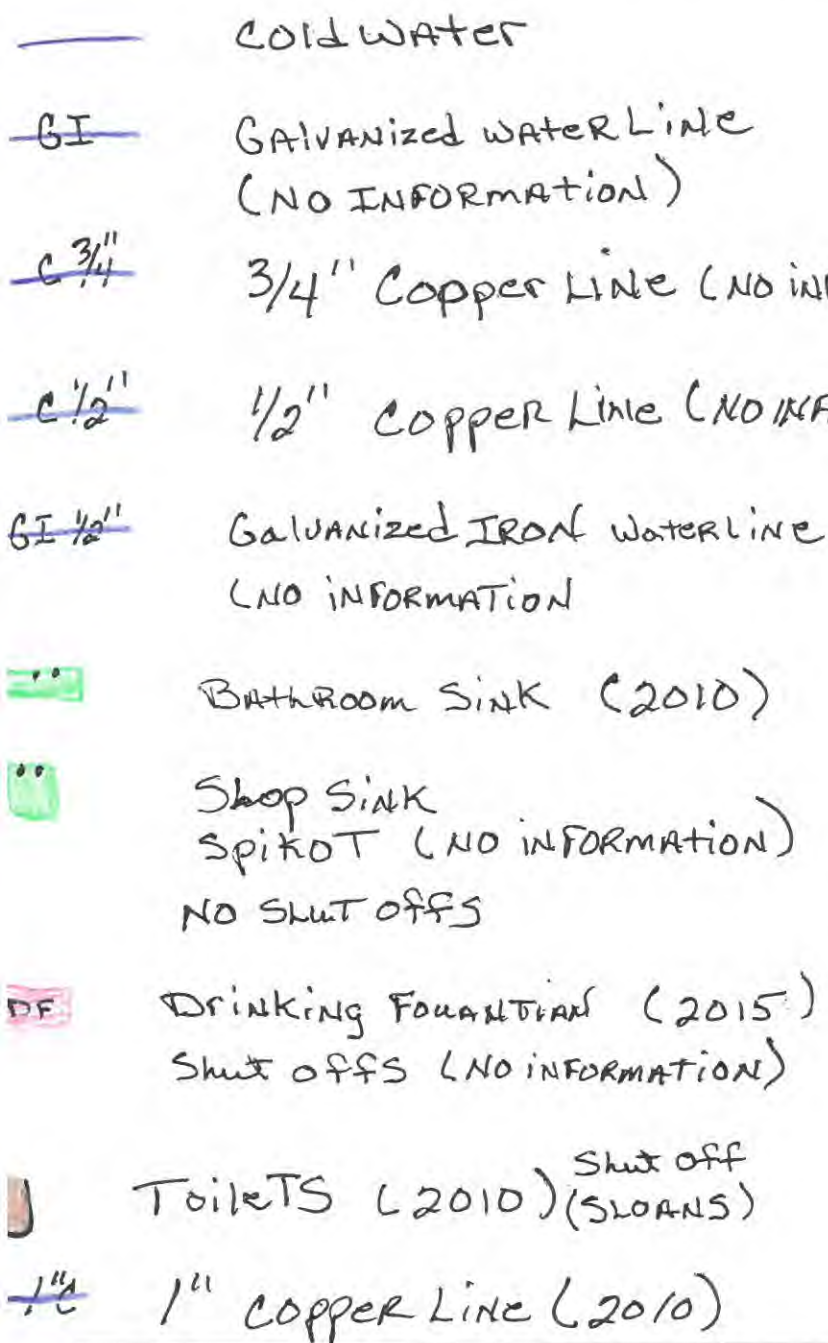 Cold Water
GI Galvanized Water Line
(No Information)
C 3/4" 3/4" Copper Line (No inf
C 1/2" 1/2" Copper Line (No INF
GI 1/2" Galvanized IRON Waterline
(No information
Bathroom Sink (2010)
Shop Sink
SpikoT (No information)
No Shut offs
DF Drinking Fouantian (2015)
Shut offs (No information)
Shut off
ToileTS (2010) (SLOANS)
1"C 1" Copper Line (2010)